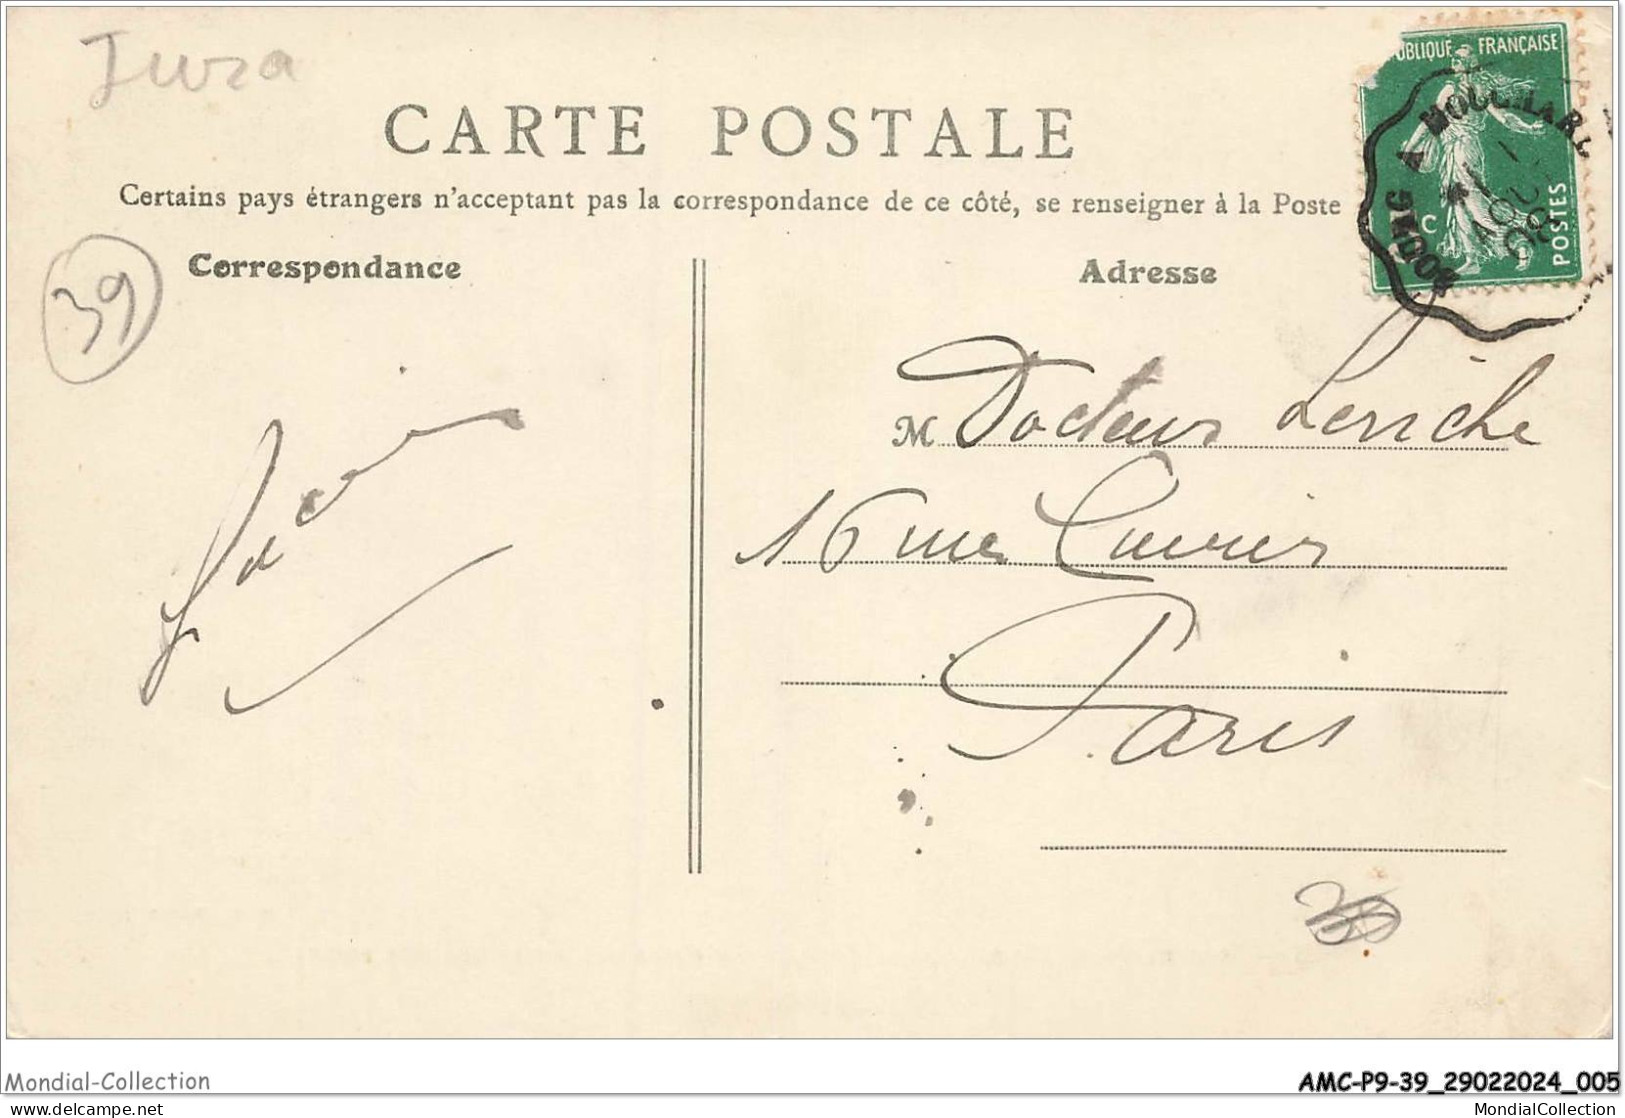 Jura
CARTE POSTALE
Certains pays étrangers n'acceptant pas la correspondance de ce côté, se renseigner à la Poste
UBLIQUE FRANÇAISE
C
POSTES
A MOUCHARD
AOUT
08
39
Correspondance
Adresse
M Docteur Leriche
16 rue Cuvier
Paris
Mondial-Collection
AMC-P9-39_29022024_005
delcampe.net
MondialCollection